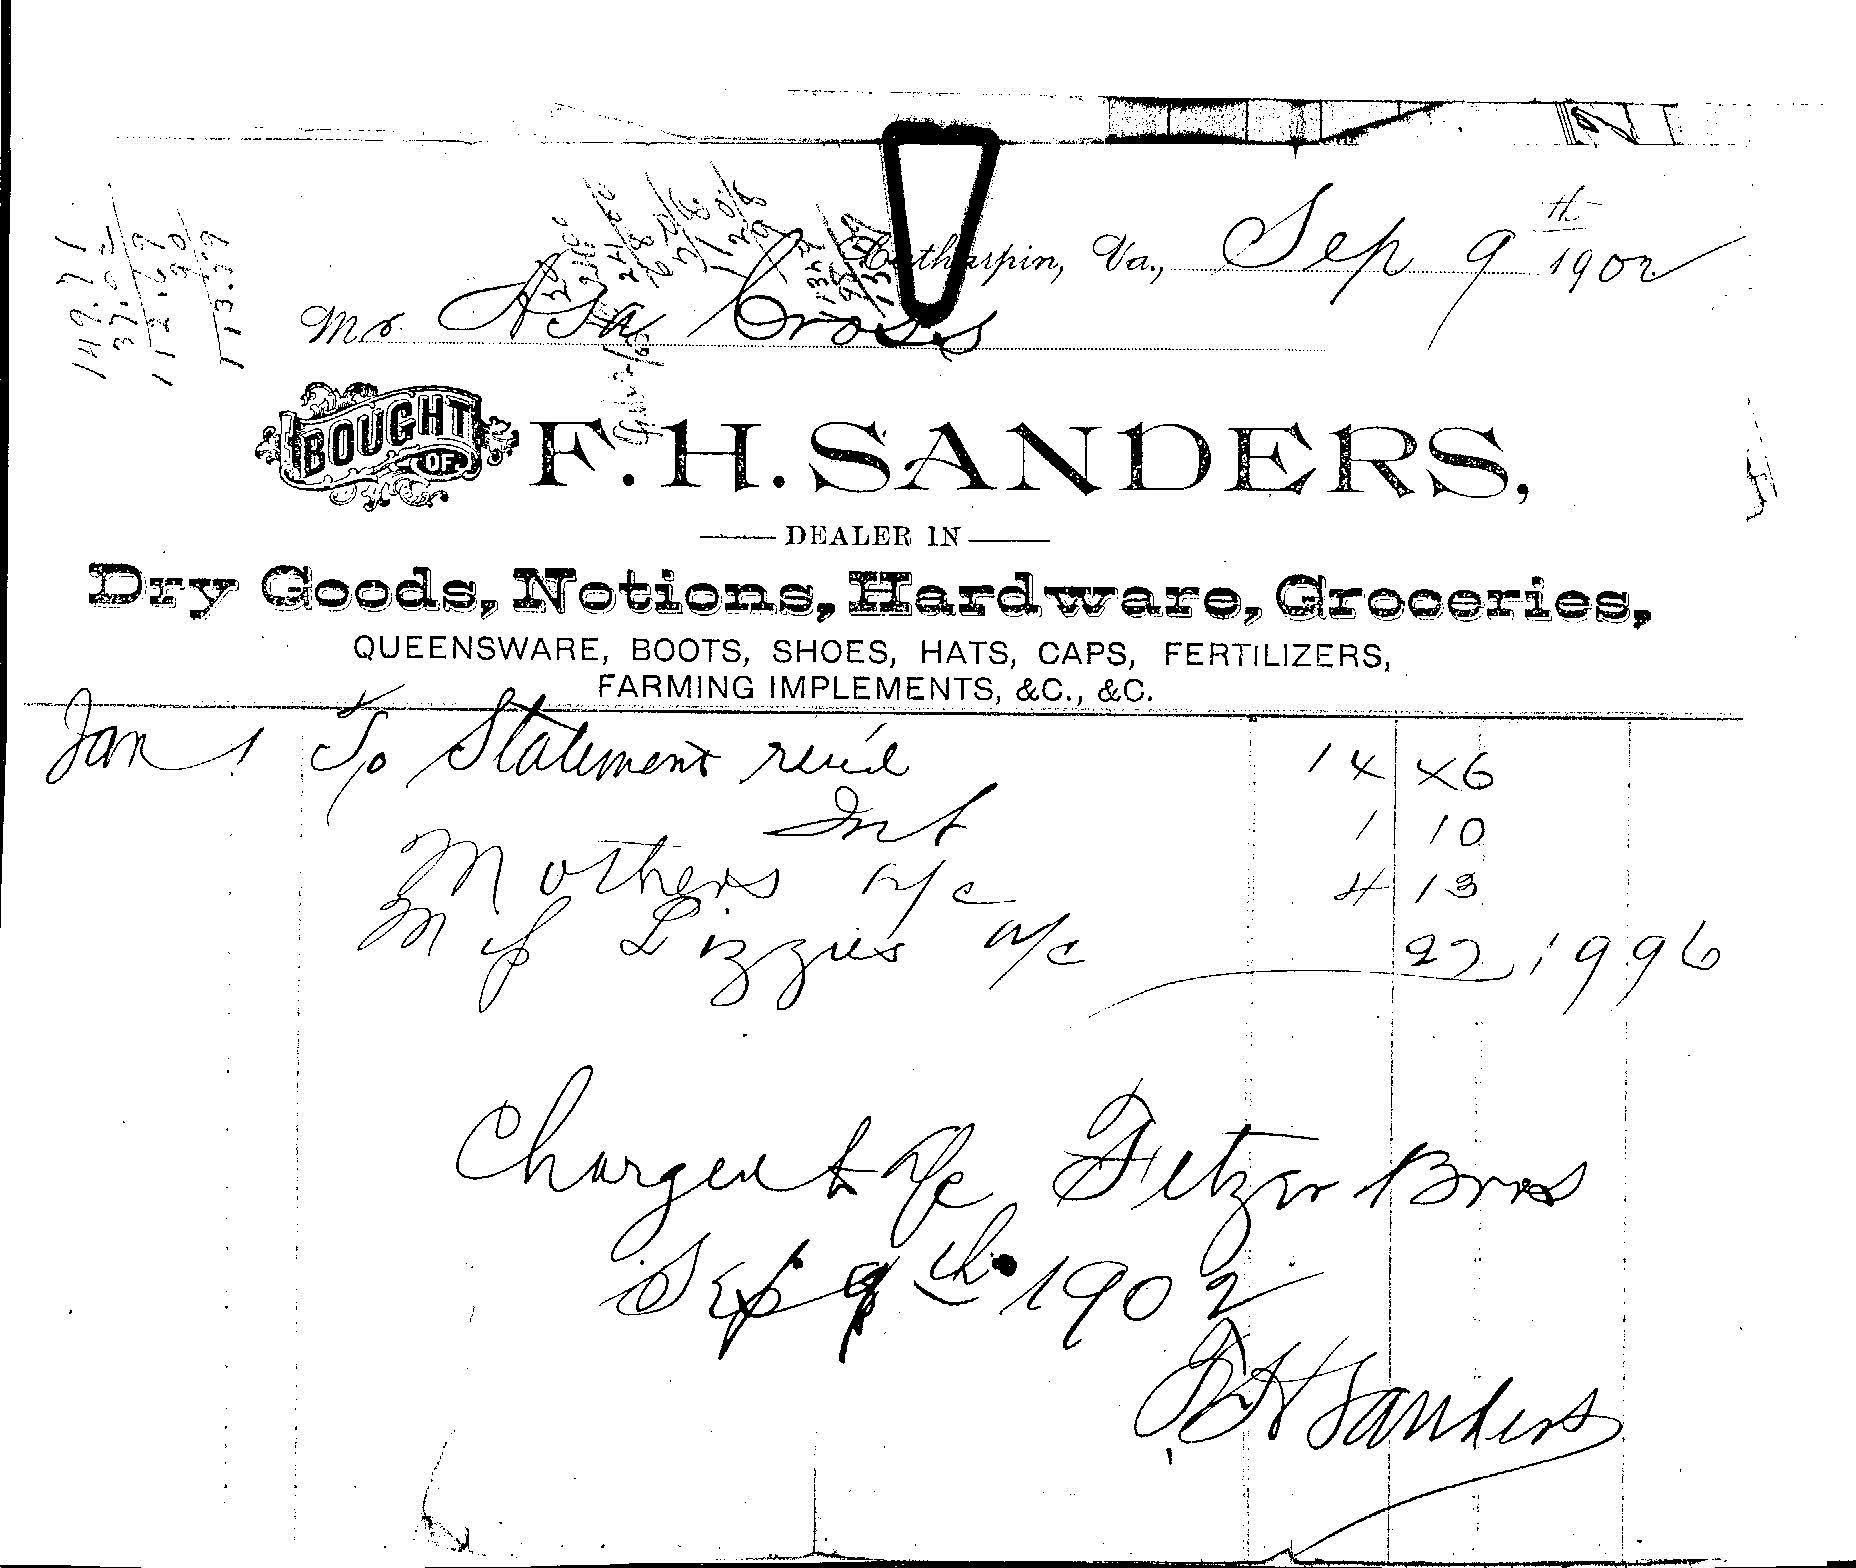 149.71
37.02
112.69
90
113.39
Catharpin, Va., Sep 9th 1902
Mr. Asa Cross
BOUGHT OF F. H. SANDERS,
DEALER IN
Dry Goods, Notions, Hardware, Groceries,
QUEENSWARE, BOOTS, SHOES, HATS, CAPS, FERTILIZERS,
FARMING IMPLEMENTS, &C., &C.
Jan 1 To Statement ren'd 14 46
Int 1 10
Mothers a/c 4 13
Lizzies a/c 22 19 96
Charged to a/c Fetzer Bros
Sep 9th 1902
F H Sanders